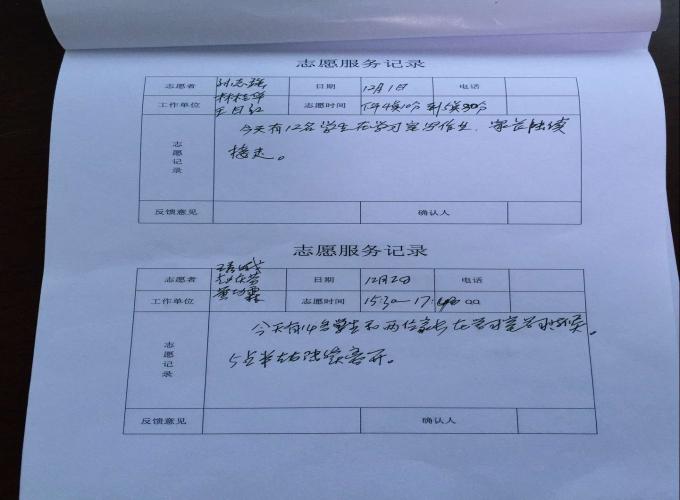 志愿服务记录
志愿者 刘志强 日期 12月1日 电话
林桂华
工作单位 王日红 志愿时间 下午4点10分到5点30分
今天有12名学生在学习室写作业，家长陆续
志愿记录 接走。
反馈意见 确认人
志愿服务记录
志愿者 日期 12月2日 电话
工作单位 志愿时间 15:30-17:
今天有14名学生和两位家长在学习室
志愿记录 5点半左右陆续离开。
反馈意见 确认人